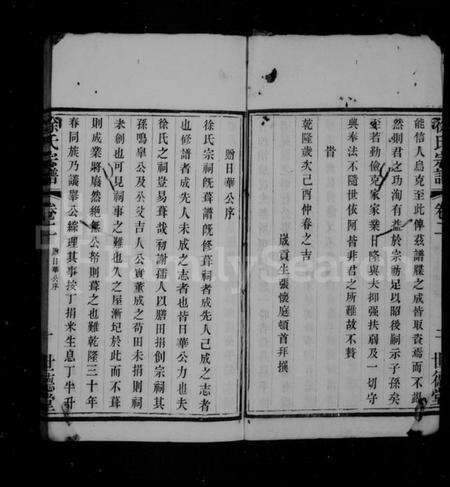 徐氏宗譜
卷二
二
世德堂
能信人烏克至此俾茲譜牒之成皆取責焉而不
然則君之功洵有益於宗祊足以昭後嗣示子孫矣
至若勤儉克家家業日隆與夫抑强扶弱及一切守
與奉法不隨世依阿者非君之所難故不贅
旹
乾隆歲次己酉仲春之吉
歲貢生張懷庭頓首拜撰
贈日華公序
徐氏宗祠既葺譜既修葺祠者成先人已成之志者
也修譜者成先人未成之志者也皆日華公力也夫
徐氏之祠豈易葺哉初謝孺人以膳田捐創宗祠其
孫鳴皋公及公殳吉人公實董成之苟田未捐則祠
未創也可見祠事之難也久之屋漸圮於此而不葺
則成業將廢然絕無公帑則葺之也難乾隆三十年
春同族乃議舉公綜理其事按丁捐米生息丁半升
徐氏宗譜
卷二
贈日華公序
一
世德堂